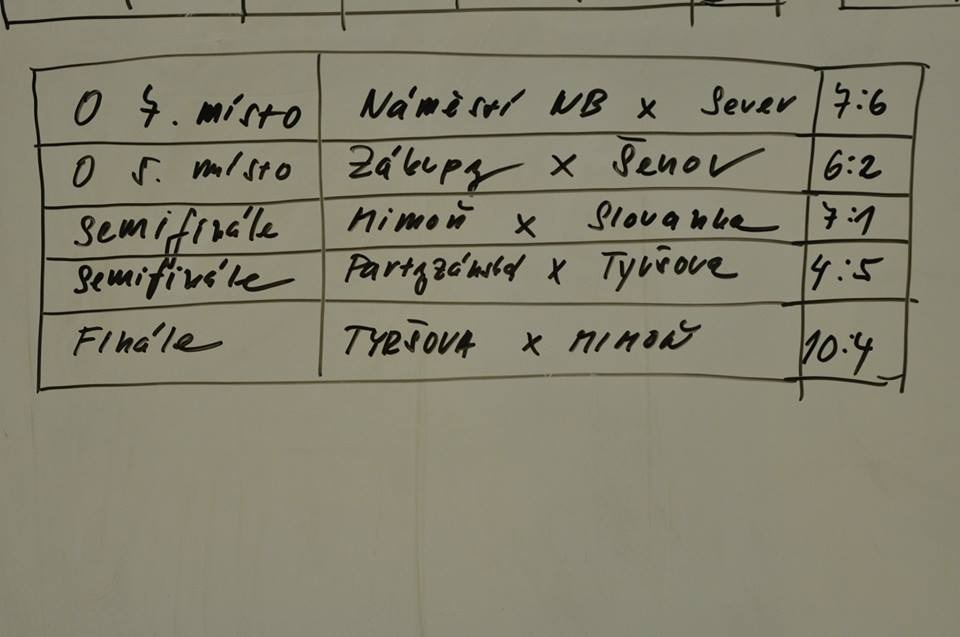 O 7. místo Náměstí NB x Sever 7:6
O 5. místo Zákupy x Šenov 6:2
Semifinále Mimoň x Slovanka 7:1
Semifinále Partyzánská x Tyršova 4:5
Finále TYRŠOVA x MIMOŇ 10:4